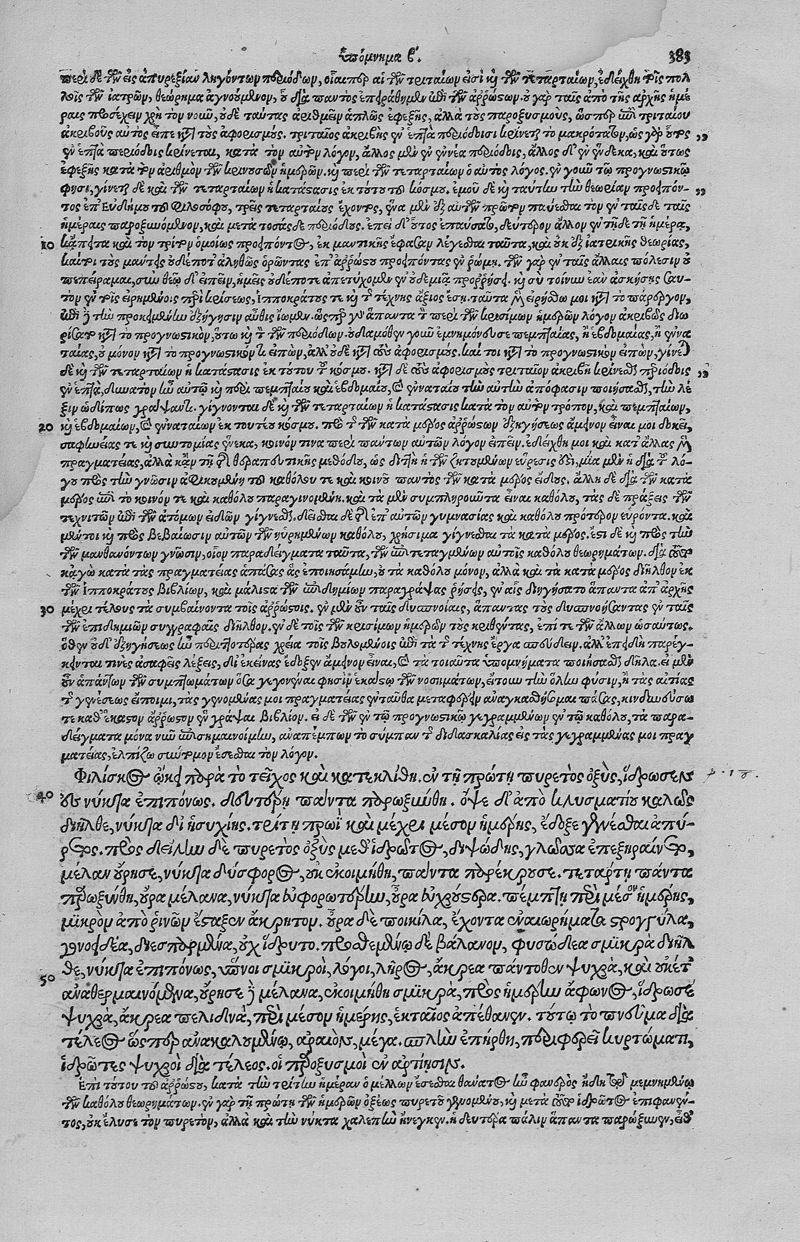 Ὑπόμνημα β'. 383
περὶ δὲ τῶν εἰς ἀπυρεξίαν ληγόντων περιόδων, οἷαιπερ αἱ τῶν τριταίων εἰσὶ καὶ τῶν τεταρταίων, ἐδείχθη τοῖς πολ
λοῖς τῶν ἰατρῶν, θεώρημα ἀγνοούμενον, ὃ διὰ παντὸς ἐπειράθημεν ἐπὶ τῶν ἀῤῥώστων. οὐ γὰρ ταῖς ἀπὸ τῆς ἀρχῆς ἡμέ
ραις προσέχειν χρὴ τὸν νοῦν, οὐδὲ ταύτας ἀριθμεῖν ἁπλῶς ἐφεξῆς, ἀλλὰ τοὺς παροξυσμούς, ὥσπερ ἐπὶ τριταίου
ἀκριβοῦς αὐτὸς εἶπε κατὰ τοὺς ἀφορισμούς. τριταῖος ἀκριβὴς ἐν ἑπτὰ περιόδοισι κρίνεται τὸ μακρότατον, ὡς γὰρ οὗτος ,,
ἐν ἑπτὰ περιόδοις κρίνεται, κατὰ τὸν αὐτὸν λόγον, ἄλλος μὲν ἐν ἐννέα περιόδοις, ἄλλος δ' ἐν ἕνδεκα, καὶ οὕτως
ἐφεξῆς κατὰ τὸν ἀριθμὸν τῶν κρινουσῶν ἡμερῶν. καὶ περὶ τῶν τεταρταίων ὁ αὐτὸς λόγος. ἐν γοῦν τῷ προγνωστικῷ
φησι, γίνεται δὲ καὶ τῶν τεταρταίων ἡ κατάστασις ἐκ τούτου τοῦ κόσμου, ἐμοῦ δὲ καὶ ταύτην τὴν θεωρίαν προειπόν- ,,
τος ἐπ' Εὐδήμου τοῦ φιλοσόφου, τρεῖς τεταρταίους ἔχοντος, ἕνα μὲν ἐξ αὐτῶν πρῶτον παύεσθαι τὸν ἐν ταῖσδε ταῖς
ἡμέραις παροξυνόμενον, καὶ μετὰ τοσάσδε περιόδους. ἐπεὶ δ' οὗτος ἐπαύσατο, δεύτερον ἄλλον ἐν τῇδε τῇ ἡμέρᾳ,
10 κἄπειτα καὶ τὸν τρίτον ὁμοίως προειπόντος, ἐκ μαντικῆς ἔφασαν λέγεσθαι ταῦτα, καὶ οὐκ ἐξ ἰατρικῆς θεωρίας,
καίτοι τοὺς μάντεις οὐδέποτ' ἀληθῶς ὁρῶντες ἐπ' ἀῤῥώστου προειπόντας ἐν ῥώμῃ. τῶν γὰρ ἐν ταῖς ἄλλαις πόλεσιν οὐ
πεπείραμαι, σὺν θεῷ δ' εἰπεῖν, ἡμεῖς οὐδέποτε ἀπετύχομεν ἐν οὐδεμιᾷ προῤῥήσει. καὶ σὺ τοίνυν ἐὰν ἀσκήσῃς σαυ-
τὸν ἐν τοῖς εἰρημένοις περὶ κρίσεως, ἱπποκράτους τε καὶ τῆς τέχνης ἄξιος ἔσῃ. ταῦτα μὲν εἰρήσθω μοι κατὰ τὸ πάρεργον,
ἐπὶ δὲ τὴν προκειμένην ἐξήγησιν αὖθις ἴωμεν. ὥσπερ γὰρ ἅπαντα τὸν περὶ τῶν κρισίμων ἡμερῶν λόγον ἀκριβῶς διώ
ρισεν κατὰ τὸ προγνωστικόν, οὕτω καὶ τὸν τῶν περιόδων. οὐδαμόθεν γοῦν ἐμνημόνευσε πεμπταίας, ἢ ἑβδομαίας, ἢ ἐννα
ταίας, οὐ μόνον κατὰ τὸ προγνωστικὸν εἰπών, ἀλλ' οὐδὲ κατὰ τοὺς ἀφορισμούς. καίτοι κατὰ τὸ προγνωστικὸν εἰπών, γίνεται
δὲ καὶ τῶν τεταρταίων ἡ κατάστασις ἐκ τούτου τοῦ κόσμου. κατὰ δὲ τοὺς ἀφορισμοὺς τριταῖον ἀκριβῆ κρίνεσθαι περιόδοις ,,
ἐν ἑπτά, δυνατὸν ἦν αὐτῷ καὶ περὶ πεμπταίου καὶ ἑβδομαίου, καὶ ἐνναταίου τὴν αὐτὴν ἀπόφασιν ποιήσασθαι, τὴν λέ
ξιν ὡδίπως γράψαντι. γίγνονται δὲ καὶ τῶν τεταρταίων ἡ κατάστασις κατὰ τὸν αὐτὸν τρόπον, καὶ πεμπταίων,
20 καὶ ἑβδομαίων, καὶ ἐνναταίων ἐκ τουτέου κόσμου. πρὸ τῆς τῶν κατὰ μέρος ἀῤῥώστων ἐξηγήσεως ἄμεινον εἶναί μοι δοκεῖ,
σαφηνείας τε καὶ συντομίας ἕνεκα, κοινόν τινα περὶ πάντων αὐτῶν λόγον εἰπεῖν. ἐδείχθη μοι καὶ κατ' ἄλλας μὲν
πραγματείας, ἀλλὰ κἀν τῇ τῆς θεραπευτικῆς μεθόδου, ὡς διττὴ ἡ τῶν ζητουμένων εὕρεσίς ἐστι, μία μὲν ἡ διὰ τοῦ λό-
γου πρὸς τὴν γνῶσιν ἀφικομένη τοῦ καθόλου τε καὶ κοινοῦ παντὸς τῶν κατὰ μέρος εἴδους. ἄλλη δὲ διὰ τῶν κατὰ
μέρος ἐπὶ τὸ κοινόν τε καὶ καθόλου παραγινομένη. καὶ τὰ μὲν συμπληροῦντα εἶναι καθόλου, τὰς δὲ πράξεις τῶν
τεχνιτῶν ἐπὶ τῶν ἀτόμων εἰδῶν γίγνεσθαι. δεῖσθαι δὲ τῆς ἐπ' αὐτῶν γυμνασίας καὶ καθόλου πρότερον εὑρόντα. καὶ
μέντοι καὶ πρὸς βεβαίωσιν αὐτῶν τῶν εὑρημένων καθόλου, χρήσιμα γίγνεσθαι τὰ κατὰ μέρος. ἔτι δὲ καὶ πρὸς τὴν
τῶν μανθανόντων γνῶσιν, οἷον παραδείγματα ταῦτα, τῶν ὑποτεταγμένων αὐτοῖς καθόλου θεωρημάτων. διὰ τοῦτο
κἀγὼ κατὰ τὰς πραγματείας ἁπάσας ἃς ἐποιησάμην, οὐ τὰ καθόλου μόνον, ἀλλὰ καὶ τὰ κατὰ μέρος διῆλθον ἐκ
τῶν ἱπποκράτους βιβλίων, καὶ μάλιστα τῶν ἐπιδημιῶν παραγράψας ῥήσεις, ἐν αἷς διηγήσατο ἅπαντα ἀπ' ἀρχῆς
30 μέχρι τέλους τὰ συμβαίνοντα τοῖς ἀῤῥώστοις. ἐν μὲν οὖν ταῖς δυσπνοίαις, ἅπαντας τοὺς δυσπνοήσαντας ἐν ταῖς
τῶν ἐπιδημιῶν συγγραφαῖς διῆλθον. ἐν δὲ τοῖς κρισίμοις ἡμερῶν τοὺς κριθέντας, ἐπί τε τῶν ἄλλων ὡσαύτως.
ὅθεν οὐδ' ἐξηγήσεως ἦν περιττοτέρας χρεία τοῖς βουλομένοις ἐπὶ τὰ τῆς τέχνης ἔργα σπεύδειν. ἀλλ' ἐπειδὴ παρέγ-
κεινταί τινες ἀσαφεῖς λέξεις, δι' ἐκείνας ἔδοξεν ἄμεινον εἶναι, καὶ τὰ τοιαῦτα ὑπομνήματα ποιήσασθαι δῆλα. εἰ μὲν
οὖν ἁπάντων τῶν συμπτωμάτων ὅσα γεγονέναι φησὶν ἑκάστῳ τῶν νοσημάτων, ἤτοι τὴν ὅλην φύσιν, ἢ τὰς αἰτίας
τῆς γενέσεως εἴποιμι, τὰς γενομένας μοι πραγματείας ἐνταῦθα μεταφέρειν ἀναγκασθήσομαι πάσας, κινδυνεύσω
τε καθ' ἕκαστον ἄῤῥωστον ἓν γράψαι βιβλίον. εἰ δὲ τῶν ἐν τῷ προγνωστικῷ γεγραμμένων ἐν τῷ καθόλου, τὰ παρα-
δείγματα μόνα νῦν ἐπισημαινοίμην, ἀναπέμπων τὸ σύμπαν τῆς διδασκαλίας εἰς τὰς γεγραμμένας μοι πραγ
ματείας, ἐλπίζω σύντομον ἔσεσθαι τὸν λόγον.
Φιλίσκος ᾤκει παρὰ τὸ τεῖχος καὶ κατεκλίθη. ἐν τῇ πρώτῃ πυρετὸς ὀξύς, ἵδρωσεν εἰς
40 νύκτα ἐπιπόνως. δευτέρῃ πάντα παρωξύνθη. ὀψὲ δ' ἀπὸ κλυσματίου καλῶς
διῆλθε, νύκτα δι' ἡσυχίης. τρίτῃ πρωῒ καὶ μέχρι μέσου ἡμέρης, ἔδοξε γενέσθαι ἀπύ-
ρετος. πρὸς δείλην δὲ πυρετὸς ὀξὺς μεθ' ἱδρῶτος, διψώδης, γλῶσσα ἐπεξηραίνετο,
μέλαν οὔρησε, νύκτα δύσφορος, οὐκ ἐκοιμήθη, πάντα παρέκρουσε. τετάρτῃ πάντα
παρωξύνθη, οὖρα μέλανα, νύκτα εὐφορωτέρην, οὖρα εὐχρούστερα. πέμπτῃ περὶ μέσον ἡμέρης,
μικρὸν ἀπὸ ῥινῶν ἔσταξεν ἄκρητον. οὖρα δὲ ποικίλα, ἔχοντα ἐναιωρήματα στρογγύλα,
γονοειδέα, διεσπαρμένα, οὐχ ἵδρυτο. προσθεμένῳ δὲ βάλανον, φυσώδεα σμικρὰ διῆλ
θε, νύκτα ἐπιπόνως, ὕπνοι σμικροί, λόγοι, λῆρος, ἄκρεα πάντοθεν ψυχρά, καὶ οὐκέτ'
50 ἀναθερμαινόμενα, οὔρησε δὲ μέλανα, ἐκοιμήθη σμικρά, πρὸς ἡμέρην ἄφωνος, ἵδρωσε
ψυχρά, ἄκρεα πελιδνά, περὶ μέσον ἡμέρης, ἑκταῖος ἀπέθανεν. τούτῳ τὸ πνεῦμα διὰ
τέλεος ὥσπερ ἀνακαλουμένῳ, ἀραιόν, μέγα. σπλὴν ἐπήρθη, περιφερεῖ κυρτώματι,
ἱδρῶτες ψυχροὶ διὰ τέλεος. οἱ παροξυσμοὶ ἐν ἀρτίῃσιν.
Ἐπὶ τούτου τοῦ ἀῤῥώστου, κατὰ τὴν τρίτην ἡμέραν ὁ μέλλων ἔσεσθαι θάνατος ἦν φανερὸς ἤδη τῷ μεμνημένῳ
τῶν καθόλου θεωρημάτων. ἐν γὰρ τῇ πρώτῃ τῶν ἡμερῶν ὀξέως πυρετοῦ γενομένου, καὶ μετὰ τοῦτο ἱδρῶτος ἐπιφανέν-
τος, οὐκ ἔλυσε τὸν πυρετόν, ἀλλὰ καὶ τὴν νύκτα χαλεπὴν ἤνεγκεν. ἡ δευτέρα πάλιν ἅπαντα παρώξυνεν, εἶθ'